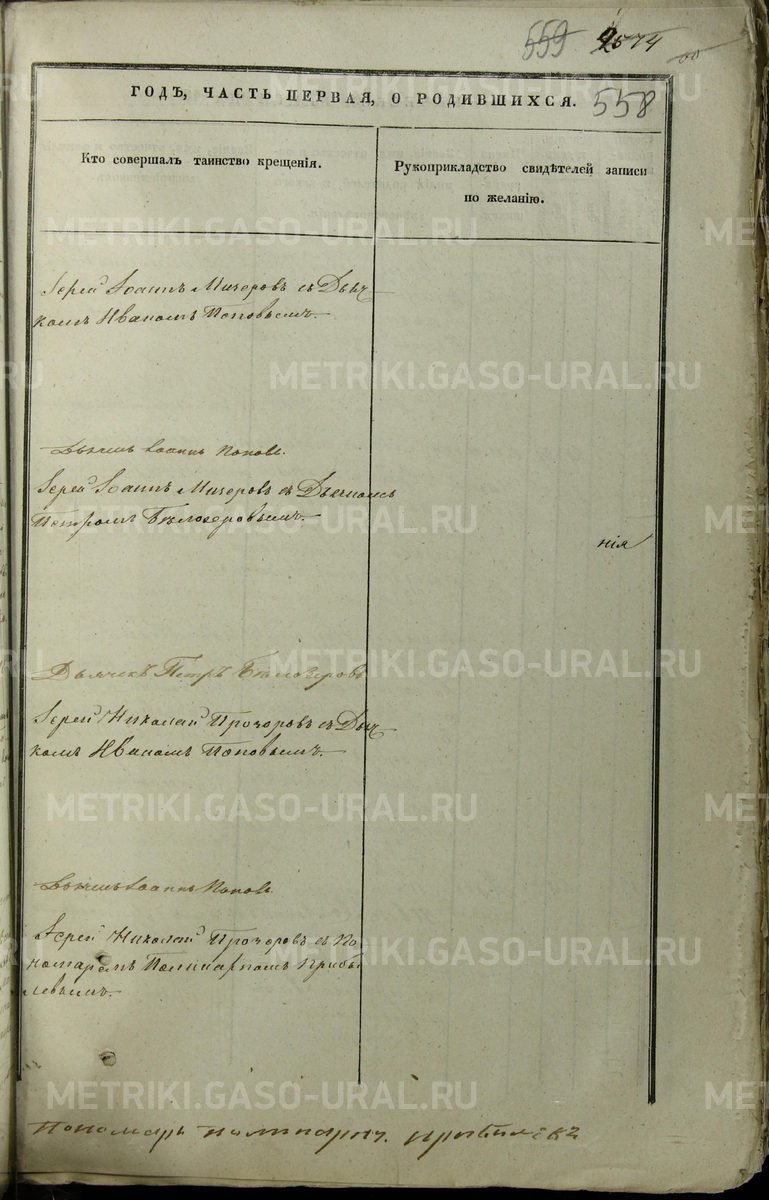 559 2574
ГОДЪ, ЧАСТЬ ПЕРВАЯ, О РОДИВШИХСЯ. 558
Кто совершалъ таинство крещенія.
Рукоприкладство свидѣтелей записи
по желанію.
Іерей Іоаннъ Мичеровъ съ Дьяч
комъ Иваномъ Поповымъ.
Дьячекъ Іоаннъ Поповъ.
Іерей Іоаннъ Мичеровъ съ Дьячкомъ
Петромъ Бѣлозеровымъ.
нія
Дьячекъ Петръ Бѣлозеровъ
Іерей Николай Прозоровъ съ Дьяч
комъ Иваномъ Поповымъ.
Дьячекъ Іоаннъ Поповъ
Іерей Николай Прозоровъ съ По
номаремъ Поликарпомъ Прибы
левымъ.
Пономарь Поликарпъ Прибылевъ
METRIKI.GASO-URAL.RU